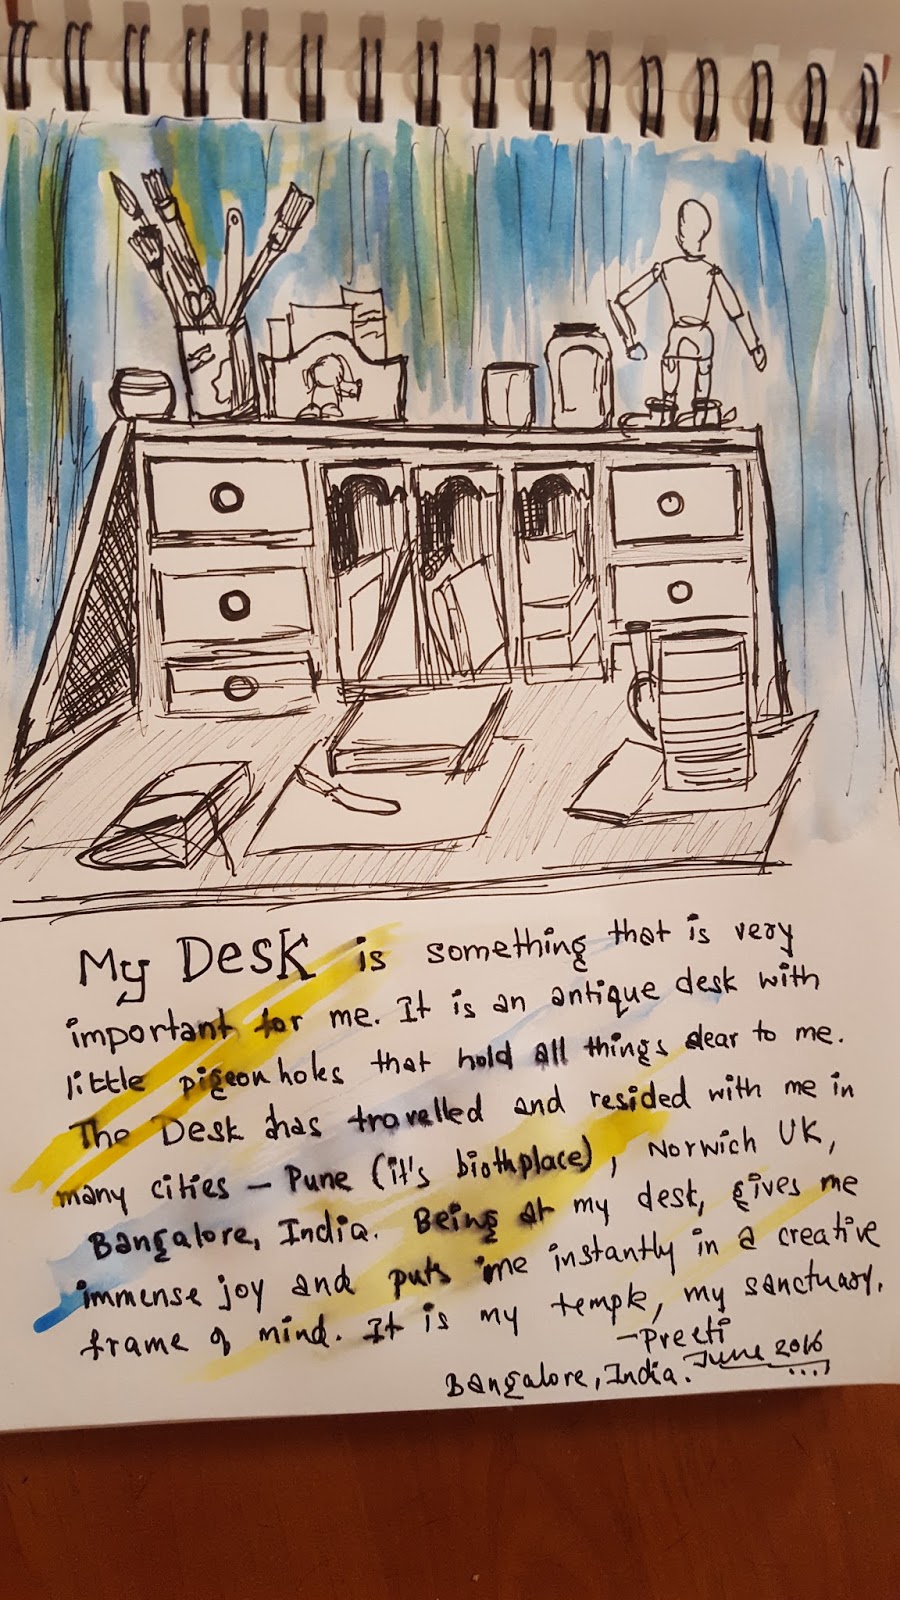 My Desk is something that is very
important for me. It is an antique desk with
little pigeon holes that hold all things dear to me.
The Desk has travelled and resided with me in
many cities – Pune (it's birthplace), Norwich UK,
Bangalore, India. Being at my desk, gives me
immense joy and puts me instantly in a creative
frame of mind. It is my temple, my sanctuary.
–Preeti
Bangalore, India. June 2016